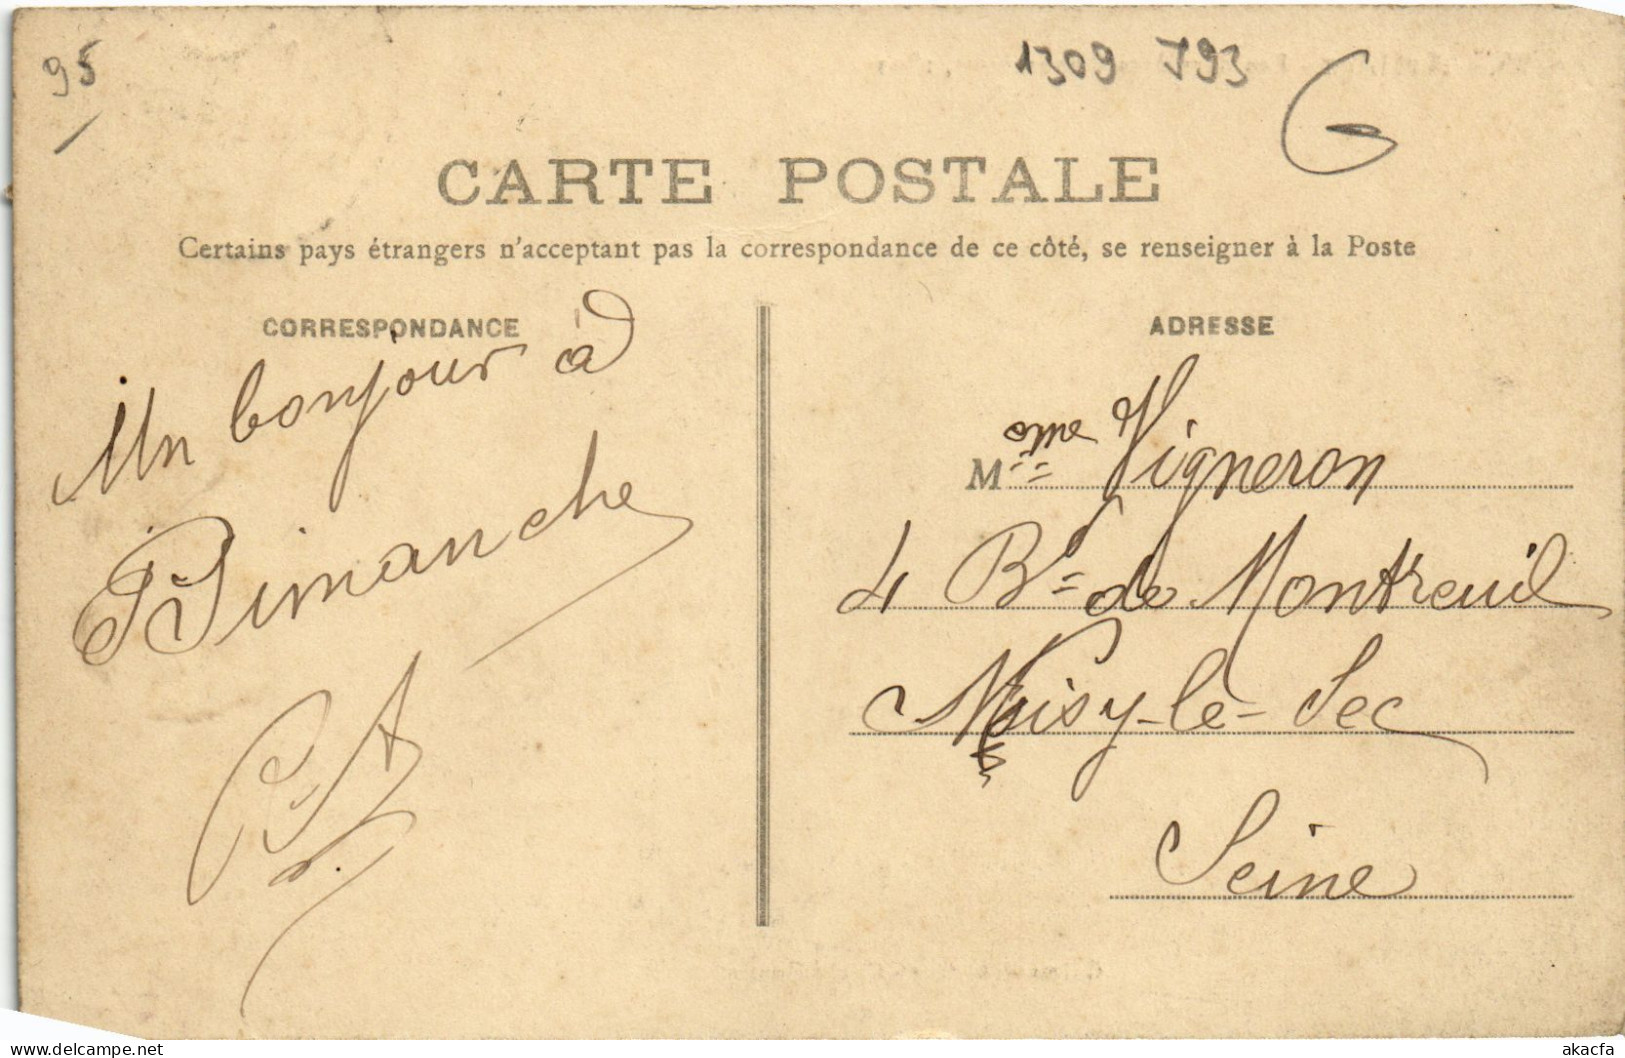 95
1309 793
CARTE POSTALE
Certains pays étrangers n'acceptant pas la correspondance de ce côté, se renseigner à la Poste
CORRESPONDANCE
Un bonjour à
Dimanche
ADRESSE
Mme Vigneron
4 Bd de Montreuil
Noisy-le-Sec
Seine
delcampe.net
akacfa